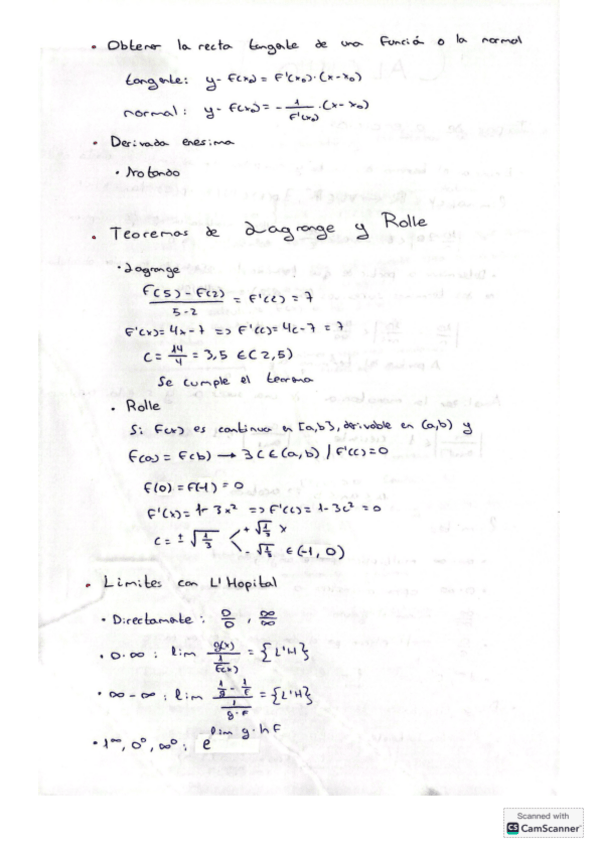 • Obtener la recta tangente de una función o la normal
tangente: y - f(x₀) = f'(x₀)·(x-x₀)
normal: y - f(x₀) = - 1/f'(x₀) ·(x-x₀)
• Derivada enesima
• Notando
• Teoremas de Lagrange y Rolle
• Lagrange
f(5) - f(2) / 5-2 = f'(c) = 7
f'(x) = 4x-7 => f'(c) = 4c-7 = 7
c = 14/4 = 3,5 ∈ (2,5)
Se cumple el teorema
• Rolle
Si f(x) es continua en [a,b], derivable en (a,b) y
f(a) = f(b) → ∃ c ∈ (a,b) / f'(c) = 0
f(0) = f(-1) = 0
f'(x) = 1- 3x² => f'(c) = 1- 3c² = 0
c = ± √1/3 < + √1/3 x
- √1/3 ∈ (-1, 0)
• Límites con L'Hopital
• Directamente: 0/0 , ∞/∞
• 0·∞ : lim g(x) / 1/f(x) = {L'H}
• ∞ - ∞ : lim 1/g - 1/f / 1/g·f = {L'H}
• 1^∞, 0⁰, ∞⁰ : e^lim g·ln f
Scanned with
CS CamScanner